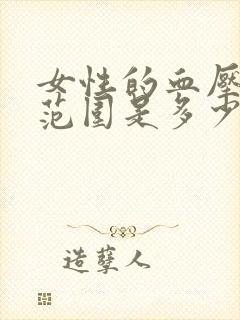 女性的血压
范围是多少
造孽人